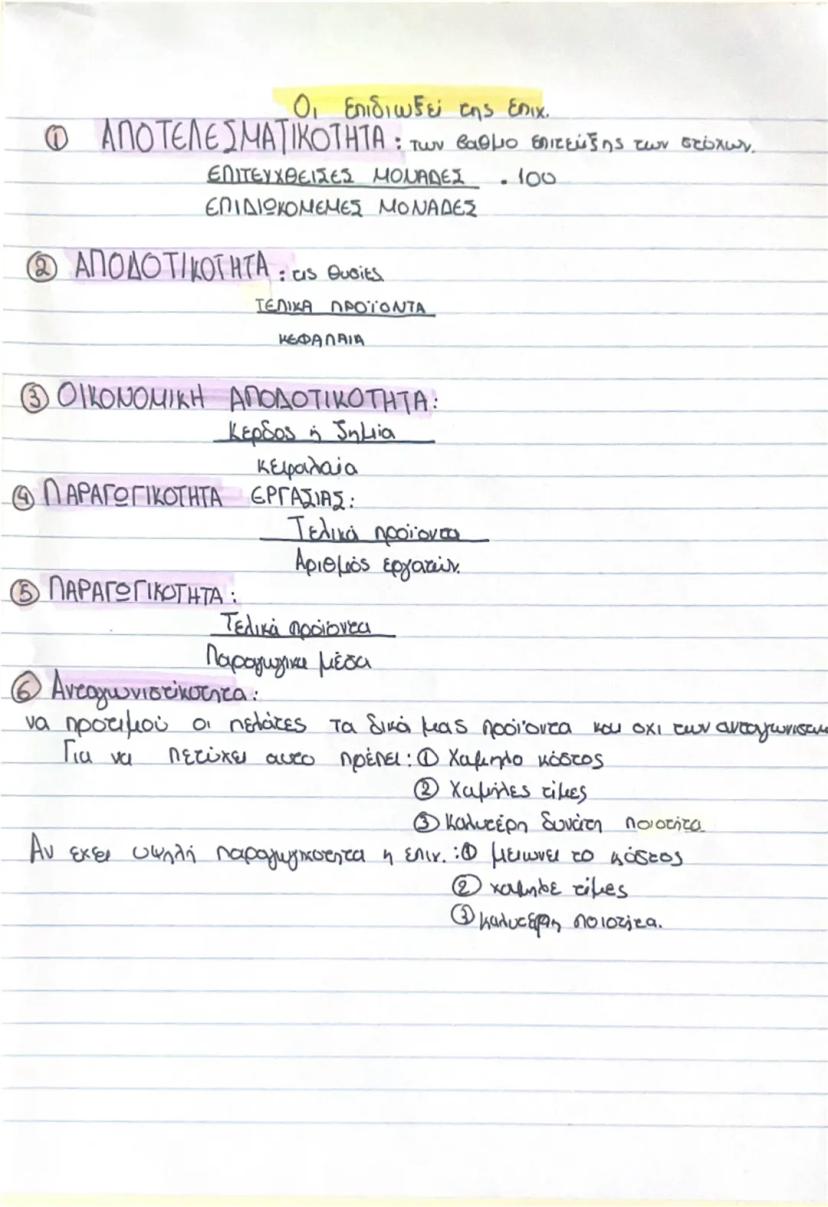 Οι επιδιωξει της επιχ.
① ΑΠΟΤΕΛΕΣΜΑΤΙΚΟΤΗΤΑ : των βαθμο επιτευξης των στοχων.
ΕΠΙΤΕΥΧΘΕΙΣΕΣ ΜΟΝΑΔΕΣ . 100
ΕΠΙΔΙΩΚΟΜΕΜΕΣ ΜΟΝΑΔΕΣ
② ΑΠΟΔΟΤΙΚΟΤΗΤΑ : τις θυσίες
ΤΕΛΙΚΑ ΠΡΟΪΟΝΤΑ
ΚΕΦΑΛΑΙΑ
③ ΟΙΚΟΝΟΜΙΚΗ ΑΠΟΔΟΤΙΚΟΤΗΤΑ:
Κερδος ή ζημια
κεφαλαια
④ ΠΑΡΑΓΩΓΙΚΟΤΗΤΑ ΕΡΓΑΣΙΑΣ:
Τελικά προϊοντα
Αριθμός εργατών.
⑤ ΠΑΡΑΓΩΓΙΚΟΤΗΤΑ :
Τελικά προϊοντα
Παραγωγικα μέσα
⑥ Ανταγωνιστικοτητα :
να προτιμού οι πελάτες τα δικά μας προϊοντα και οχι των ανταγωνιστων
Για να πετύχει αυτο πρέπει : ① Χαμηλο κόστος
② Χαμηλες τίμες
③ Καλυτέρη δυνάτη ποιοτήτα
Αν εχει υψηλή παραγωγικοτητα η επιχ. : ① μειωνει το κόστος
② χαμηλε τίμες
③ καλυτερη ποιοτήτα.